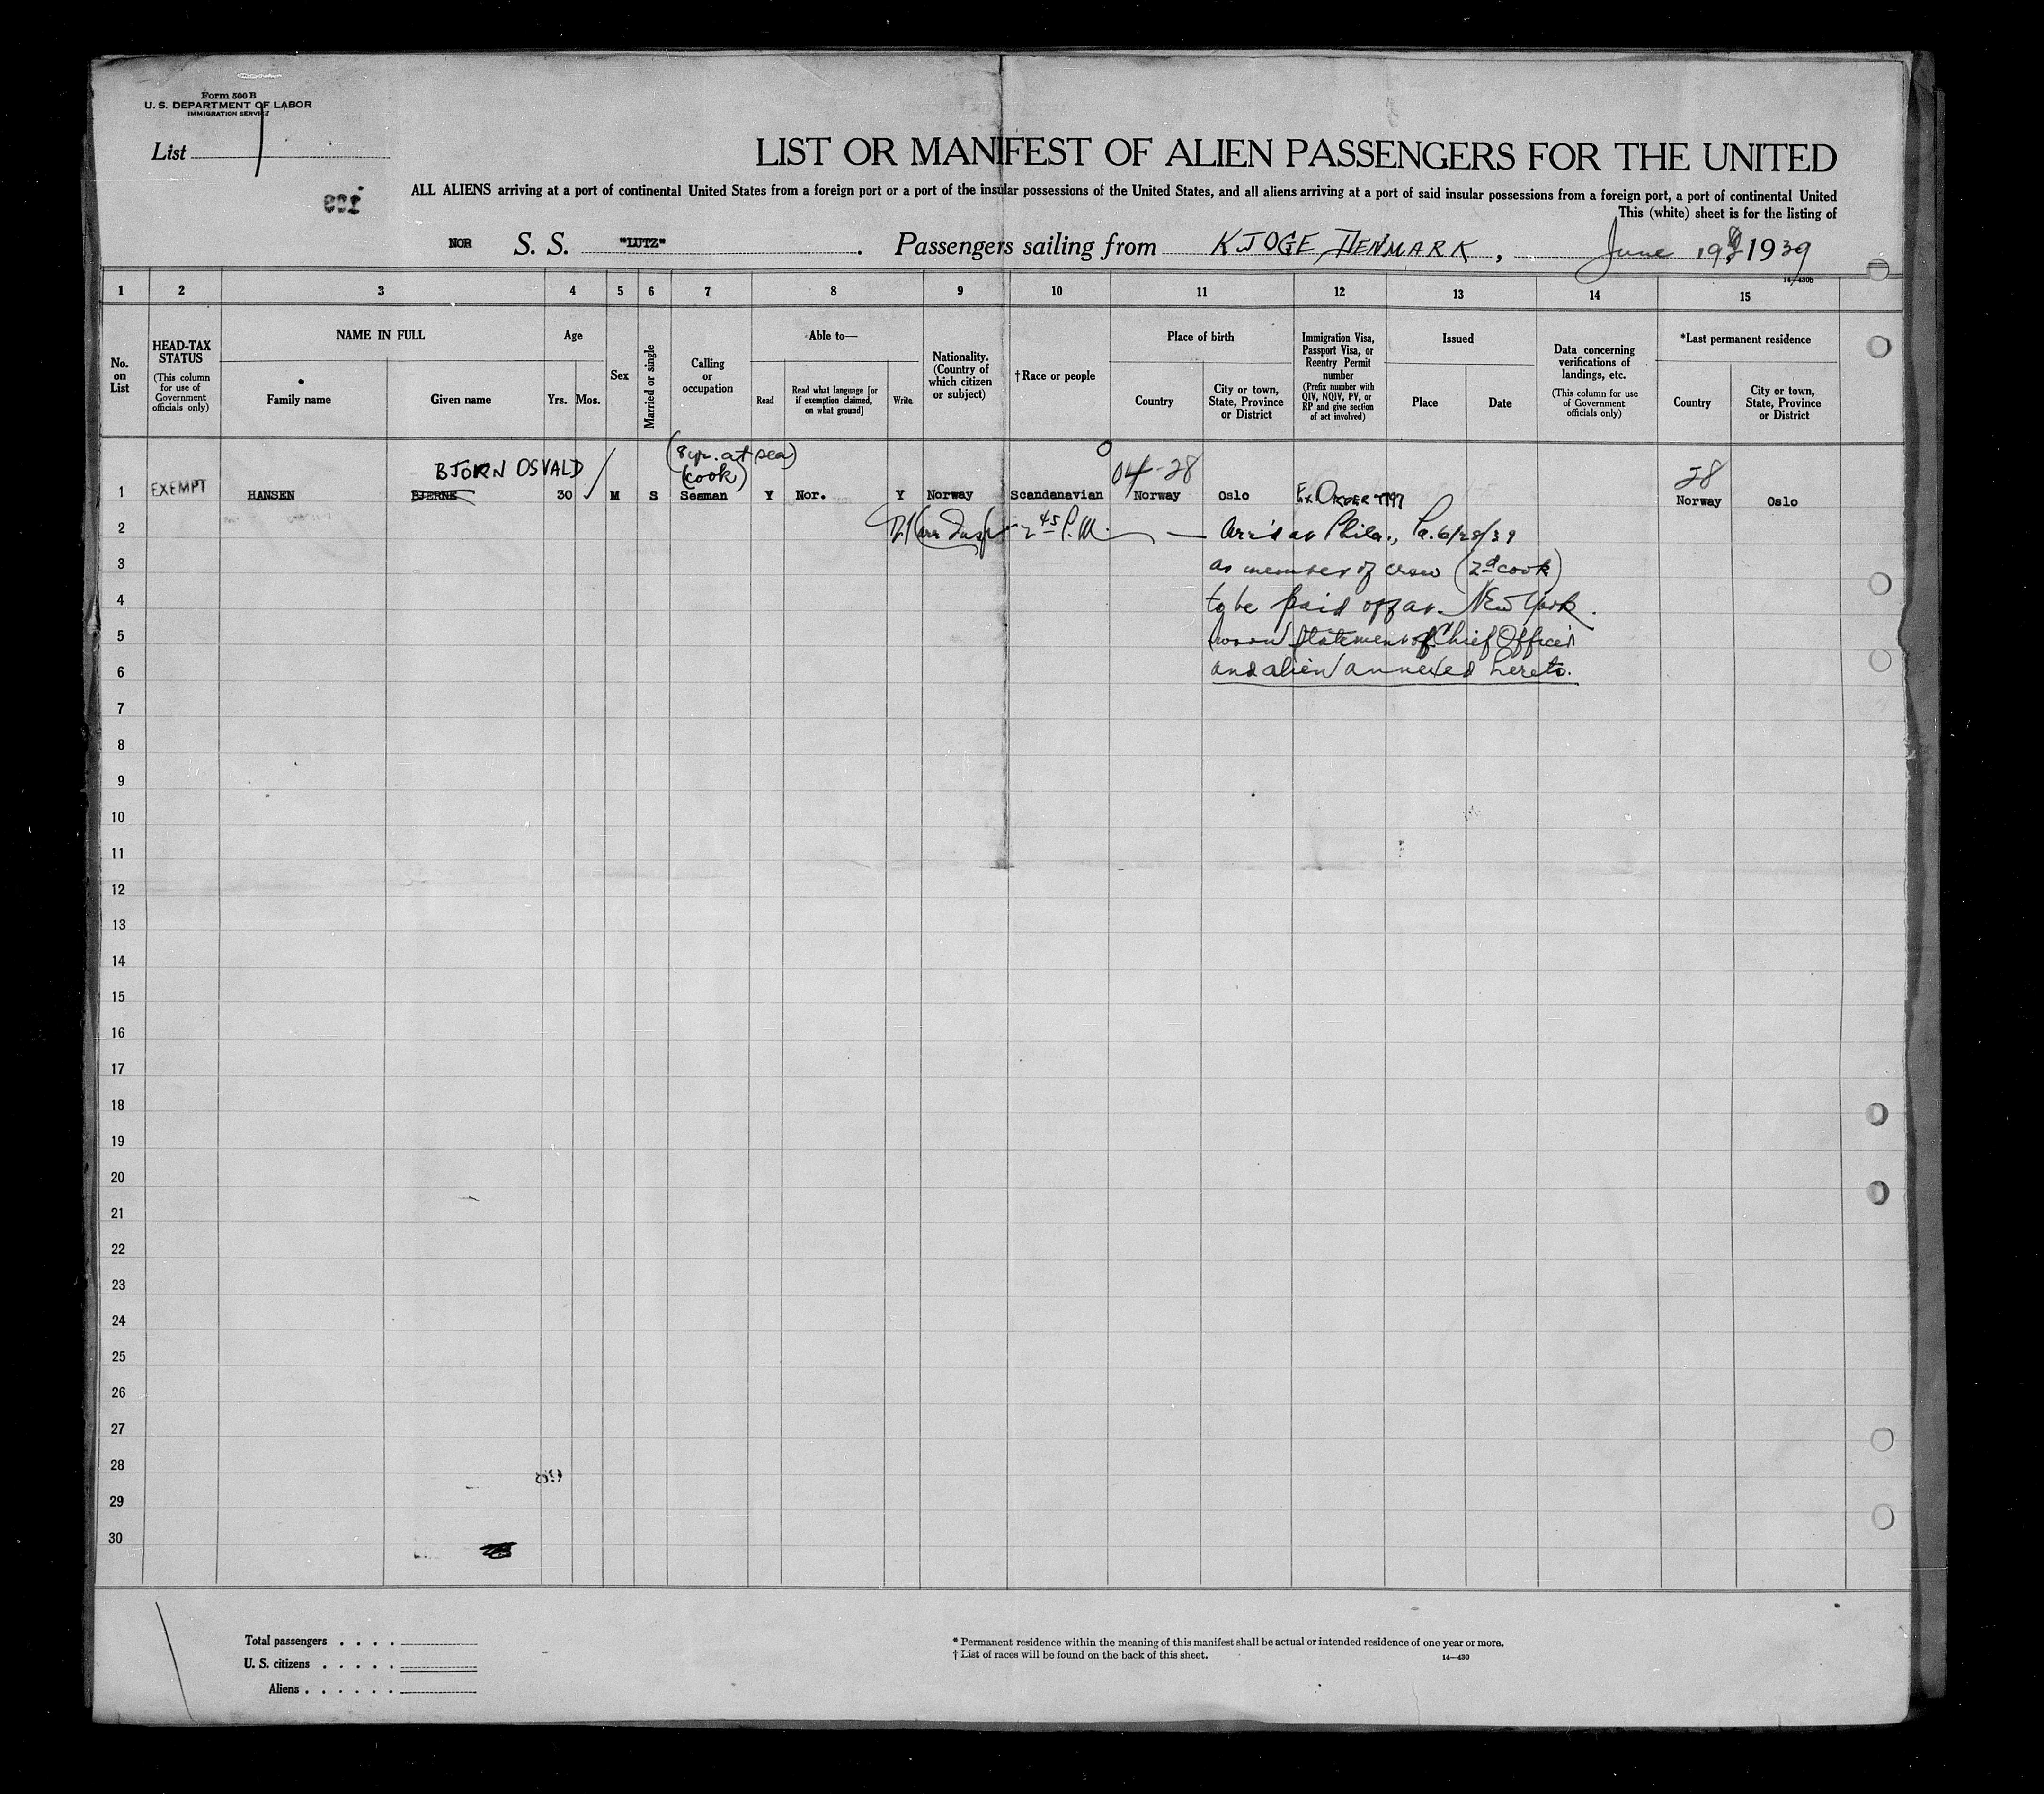 Form 500 B
U. S. DEPARTMENT OF LABOR
IMMIGRATION SERVICE
List 1
LIST OR MANIFEST OF ALIEN PASSENGERS FOR THE UNITED
ALL ALIENS arriving at a port of continental United States from a foreign port or a port of the insular possessions of the United States, and all aliens arriving at a port of said insular possessions from a foreign port, a port of continental United
This (white) sheet is for the listing of
NOR S. S. "LUTZ" . Passengers sailing from KJOGE, DENMARK , June 19 1939
14—430B
1 2 3 4 5 6 7 8 9 10 11 12 13 14 15
No. on List
HEAD-TAX STATUS
(This column for use of Government officials only)
NAME IN FULL
Family name
Given name
Age
Yrs. Mos.
Sex
Married or single
Calling or occupation
Able to—
Read
Read what language [or if exemption claimed, on what ground]
Write
Nationality. (Country of which citizen or subject)
†Race or people
Place of birth
Country
City or town, State, Province or District
Immigration Visa, Passport Visa, or Reentry Permit number
(Prefix number with QIV, NQIV, PV, or RP and give section of act involved)
Issued
Place
Date
Data concerning verifications of landings, etc.
(This column for use of Government officials only)
*Last permanent residence
Country
City or town, State, Province or District
(8 yr. at sea)
BJORN OSVALD (cook) 04-28 28
1 EXEMPT HANSEN BJERNE 30 M S Seaman Y Nor. Y Norway Scandanavian Norway Oslo Ex Order 7797 Norway Oslo
2 2 45 P.M. — Arr'd at Phila., Pa. 6/28/39
3 as member of crew (2d cook)
4 to be paid off at New York.
5 Sworn statement of Chief Officer
6 and alien annexed hereto.
7
8
9
10
11
12
13
14
15
16
17
18
19
20
21
22
23
24
25
26
27
28
29
30
Total passengers . . . .
U. S. citizens . . . . .
Aliens . . . . . .
* Permanent residence within the meaning of this manifest shall be actual or intended residence of one year or more.
† List of races will be found on the back of this sheet.
14—430